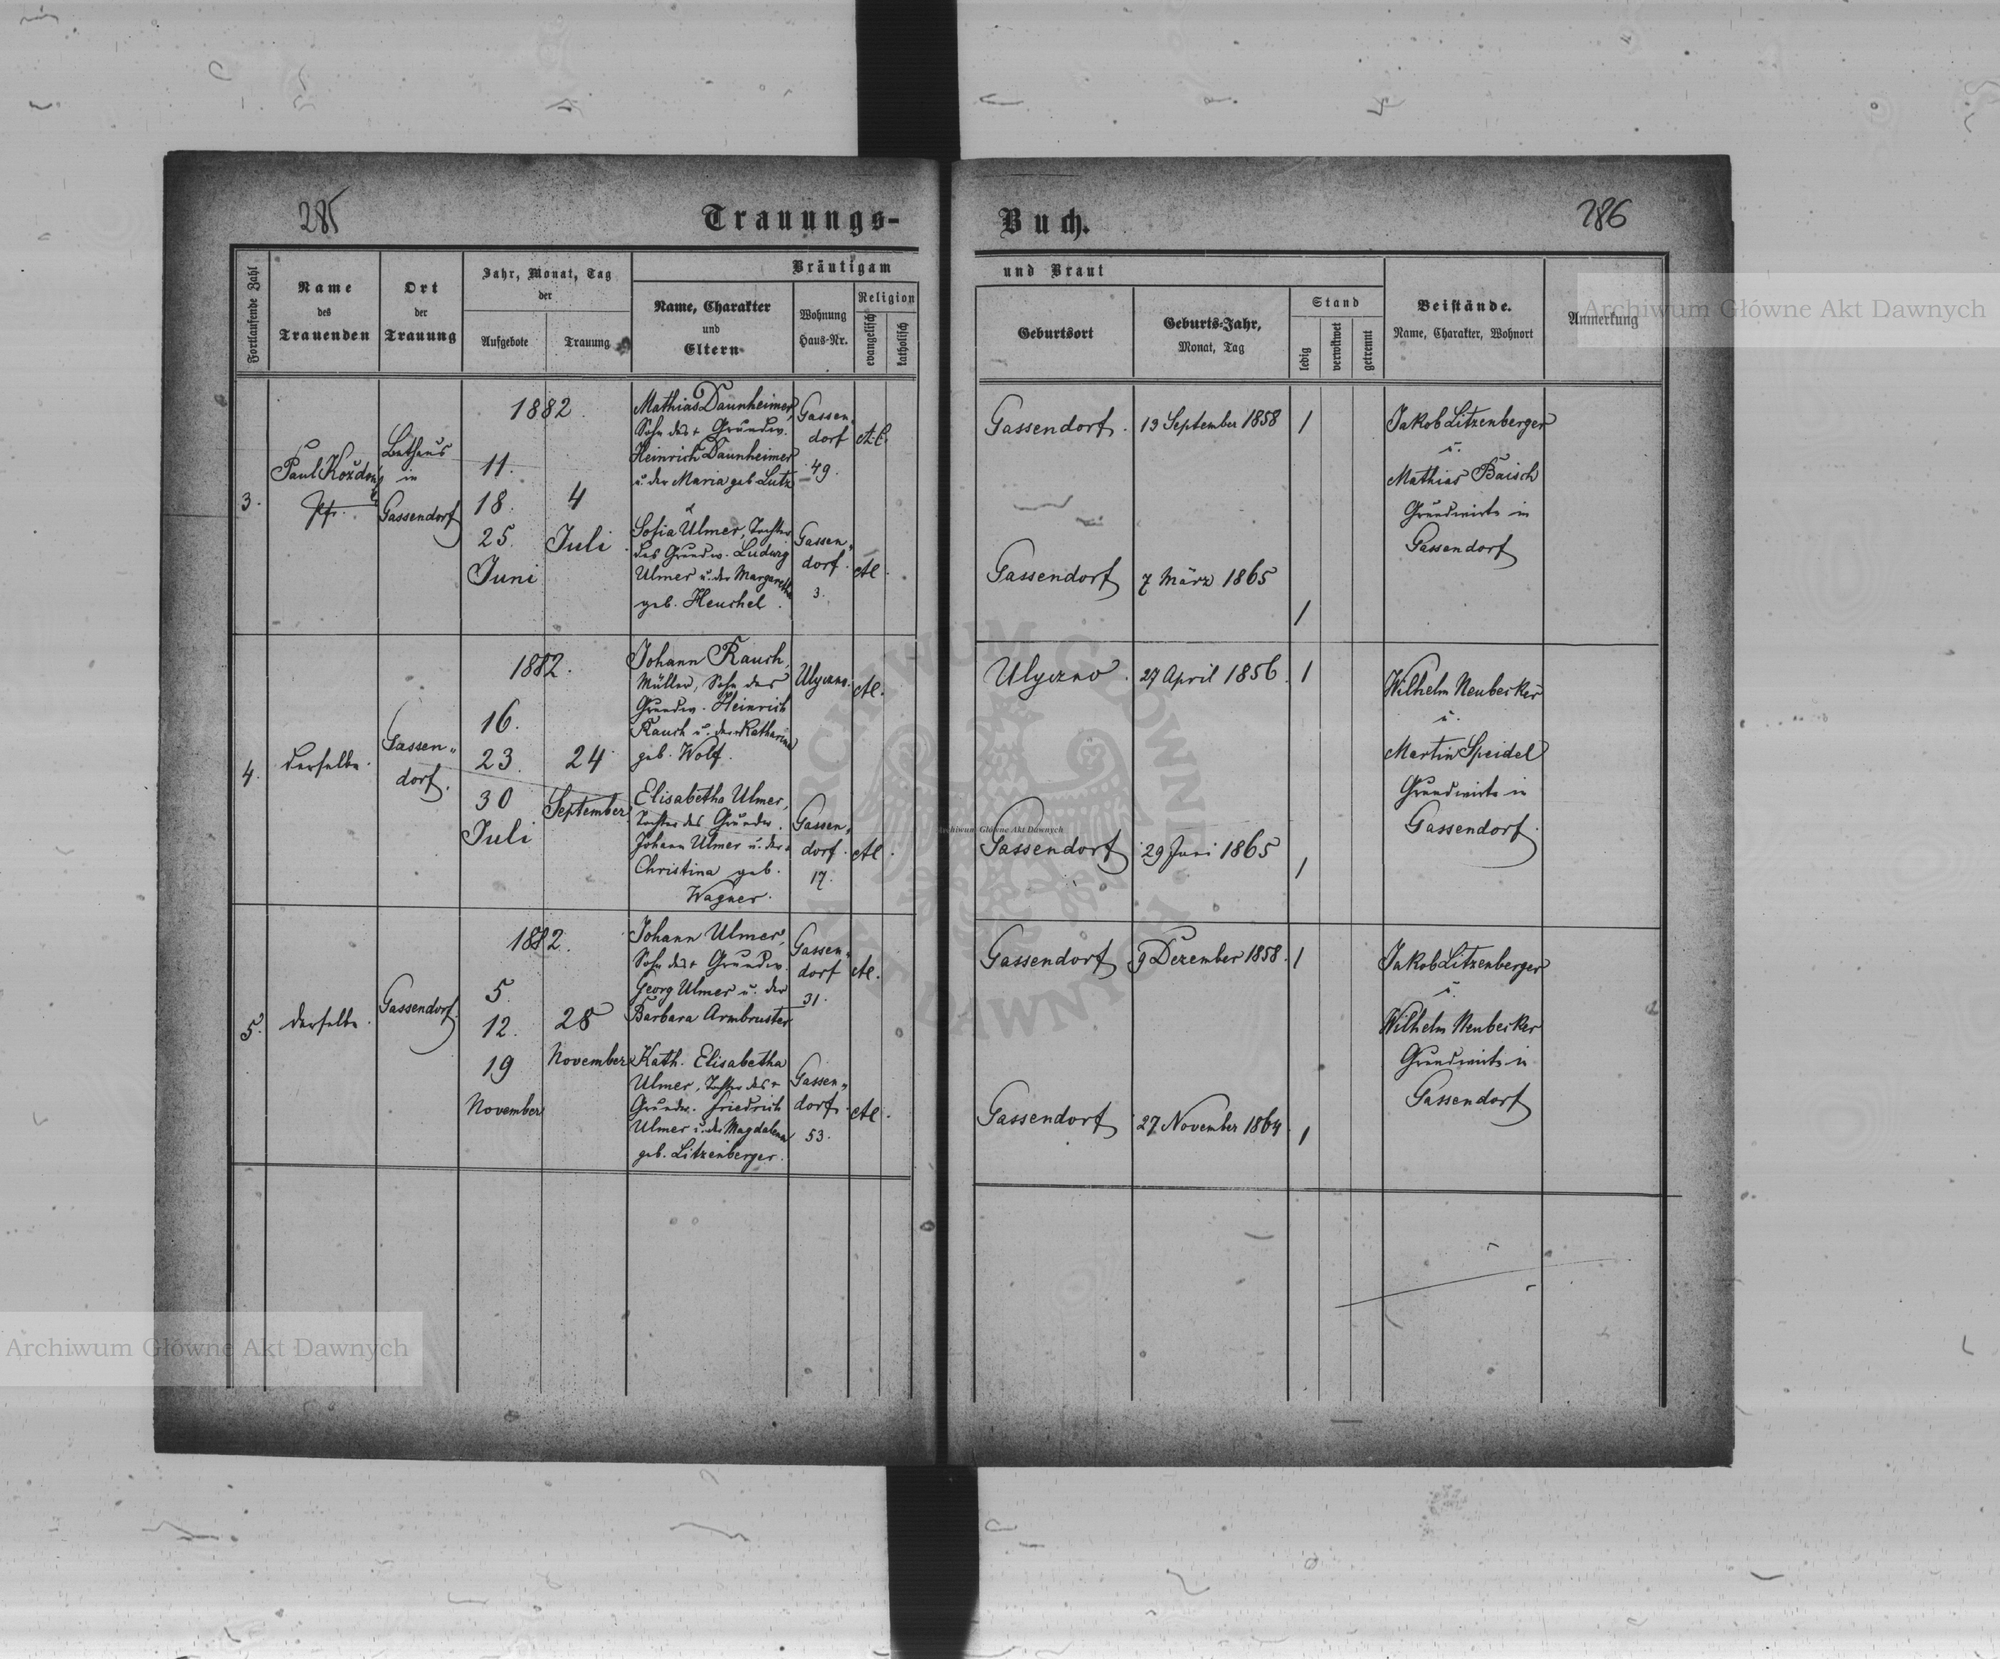 285
Trauungs-
Buch.
286
Fortlaufende Zahl
Name
des
Trauenden
Ort
der
Trauung
Jahr, Monat, Tag
der
Aufgebote
Trauung
Bräutigam
Name, Charakter
und
Eltern
Wohnung
Haus-Nr.
Religion
evangelisch
katholisch
und Braut
Geburtsort
Geburts-Jahr,
Monat, Tag
Stand
ledig
verwitwet
getrennt
Beistände.
Name, Charakter, Wohnort
Anmerkung
3.
Pfr.
Bethaus
in
Gassendorf
1882.
11.
18.
25.
Juni
4
Juli.
Mathias Daunheimer,
Sohn des + Grundw.
Heinrich Daunheimer
u. der Maria geb. Lutz
u
Sofia Ulmer, Tochter
des Grundw. Ludwig
Ulmer u. der Margaretha
geb. Heuchel.
Gassen„
dorf
49.
Gassen„
dorf.
3.
A.C.
AC.
Gassendorf.
13 September 1858
1
Gassendorf
7 März 1865
1
Jakob Litzenberger
u.
Mathias Baisch
Grundwirte in
Gassendorf
4.
derselbe.
Gassen„
dorf.
1882.
16.
23.
30
Juli
24
September.
Johann Rauch,
Müller, Sohn des
Grundw. Heinrich
Rauch u. der + Katharina
geb. Wolf.
Elisabetha Ulmer,
Tochter des Grundw.
Johann Ulmer u. der +
Christina geb.
Wagner.
Ulyczno.
Gassen„
dorf.
17.
AC.
AC.
Ulyczno.
27 April 1856.
1
Gassendorf
29 Juni 1865
1
Wilhelm Neubecker
u.
Martin Speidel
Grundwirte in
Gassendorf.
5.
derselbe.
Gassendorf.
1882.
5.
12.
19
November
28
November
Johann Ulmer,
Sohn des + Grundw.
Georg Ulmer u. der
Barbara Armbruster
Kath. Elisabetha
Ulmer, Tochter des +
Grundw. Friedrich
Ulmer u. der Magdalena
geb. Litzenberger.
Gassen„
dorf
31.
Gassen„
dorf.
53.
AC.
AC.
Gassendorf
9 Dezember 1858.
1
Gassendorf
27 November 1864.
1
Jakob Litzenberger
u.
Wilhelm Neubecker
Grundwirte in
Gassendorf
Archiwum Główne Akt Dawnych
Archiwum Główne Akt Dawnych
Archiwum Główne Akt Dawnych
ARCHIWUM GŁÓWNE AKT DAWNYCH